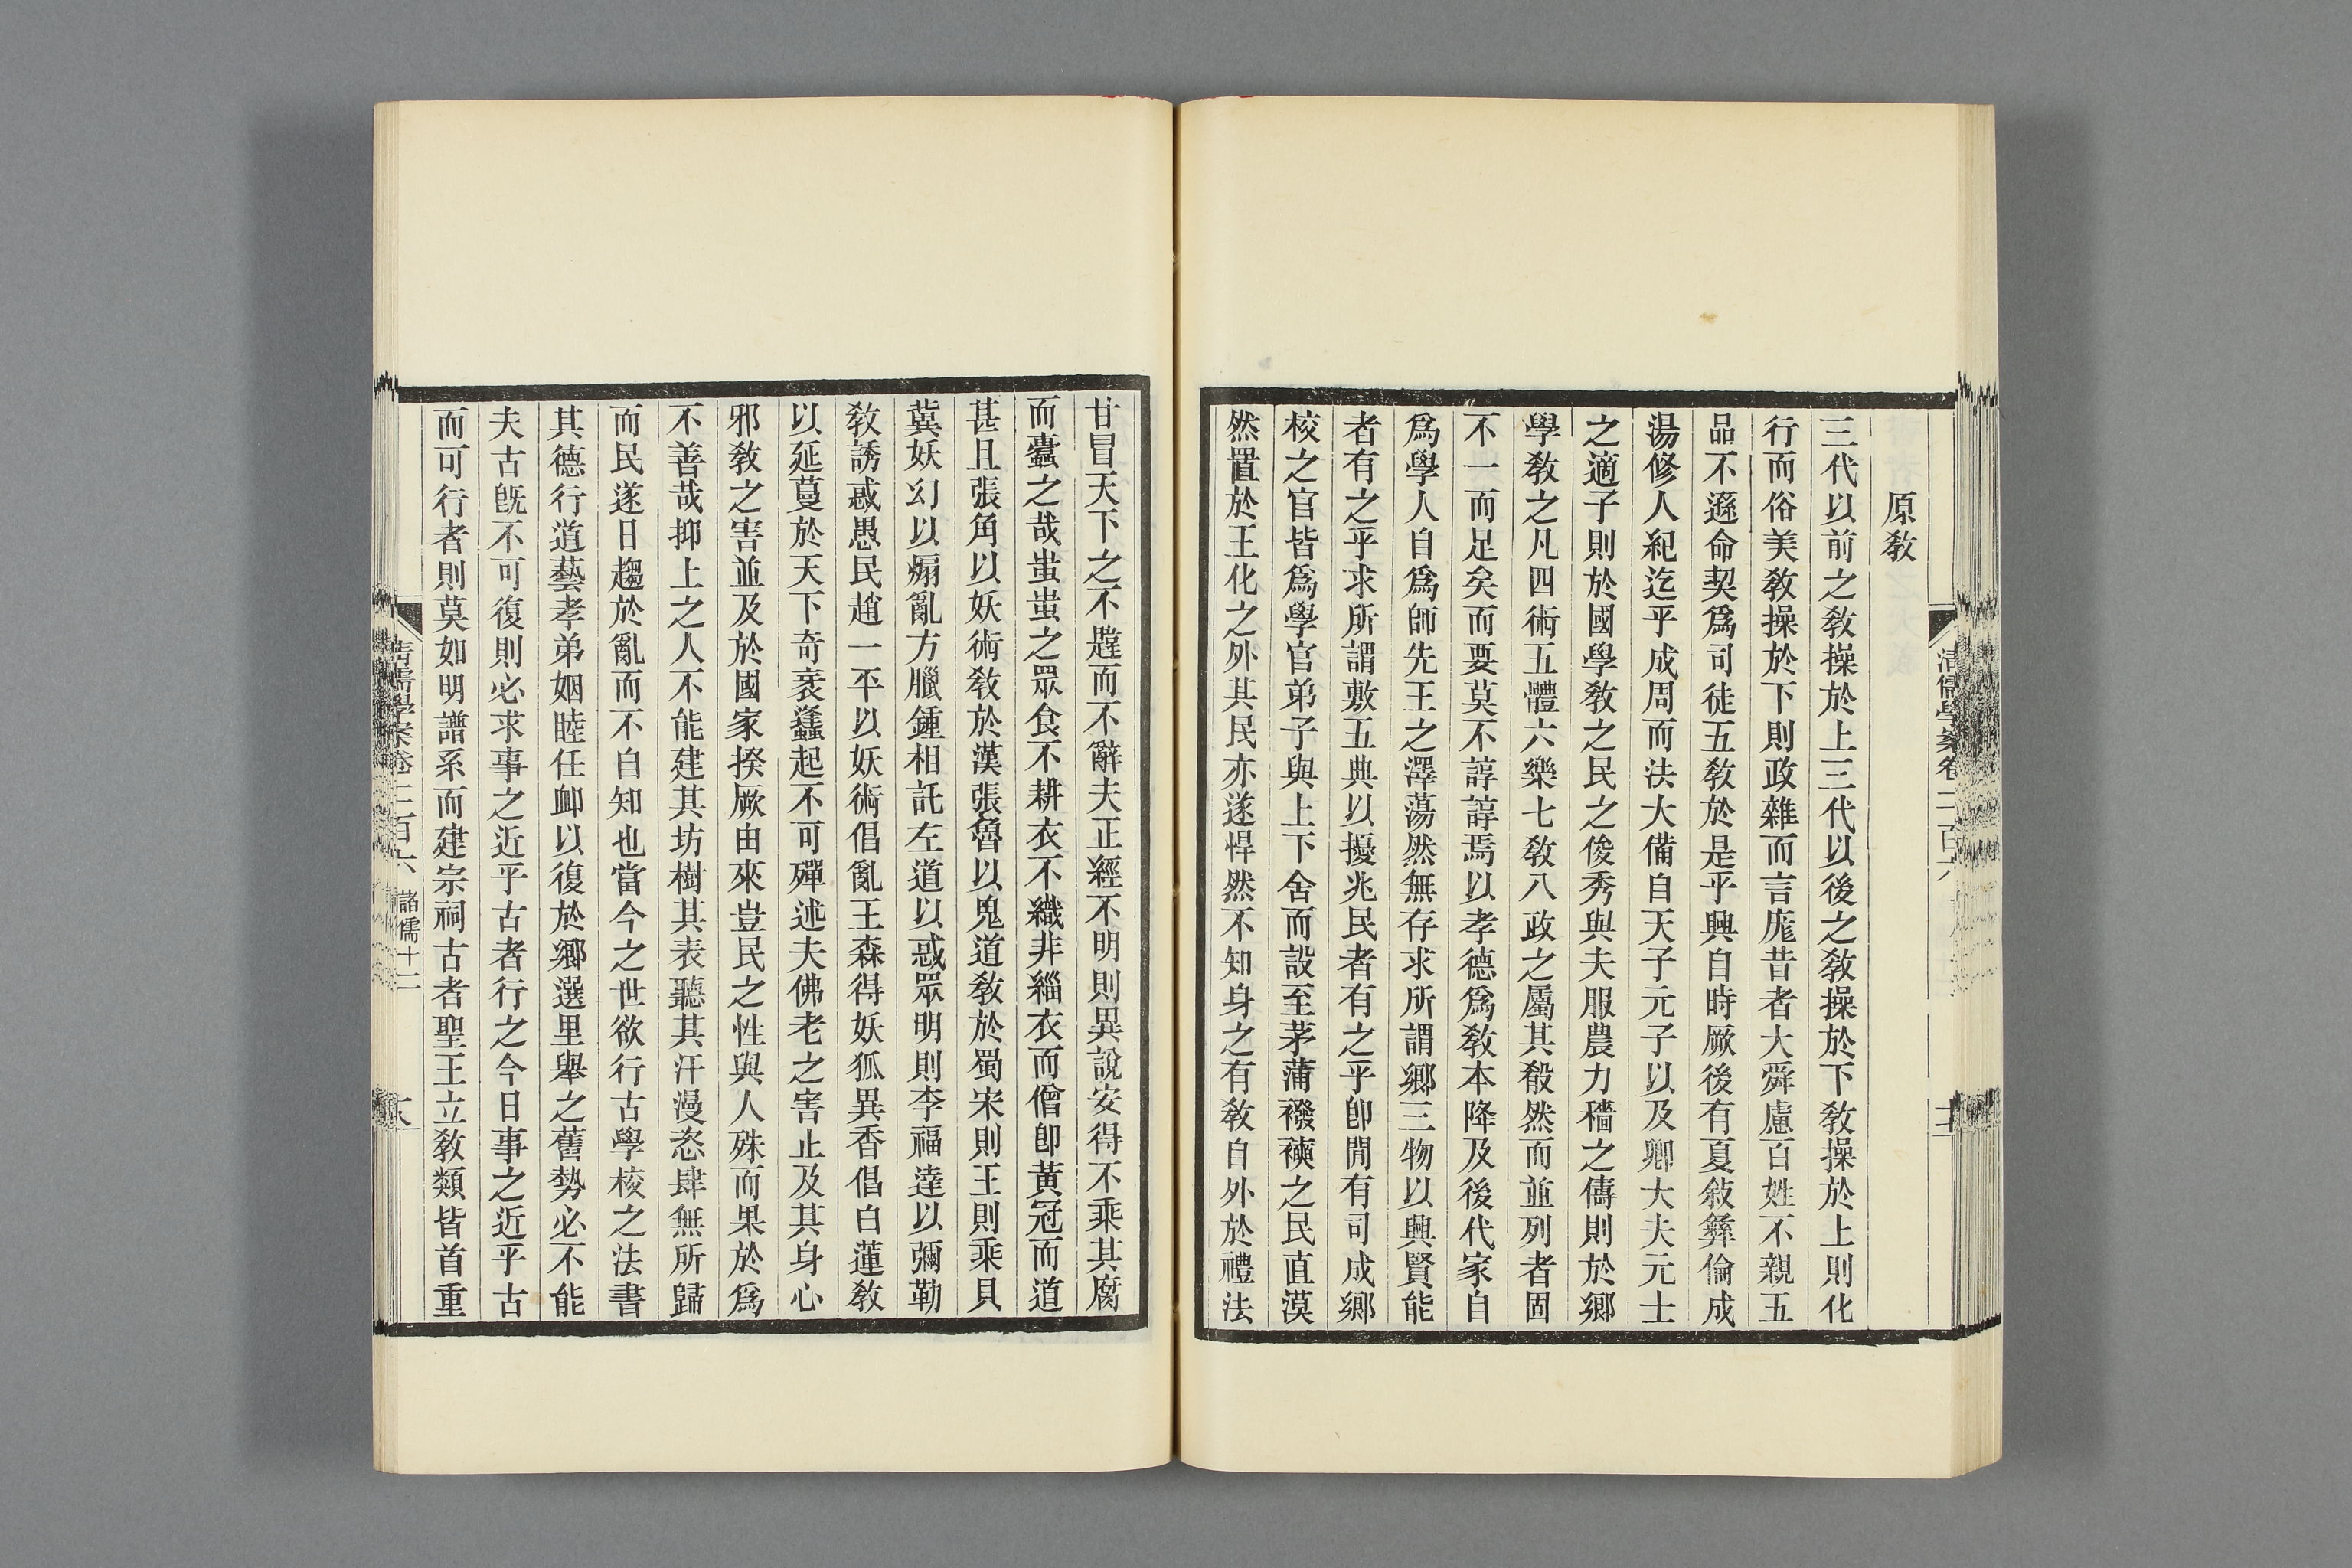 原敎
三代以前之敎操於上三代以後之敎操於下敎操於上則化
行而俗美敎操於下則政雜而言庬昔者大舜慮百姓不親五
品不遜命契爲司徒五敎於是乎興自時厥後有夏敍彝倫成
湯修人紀迄乎成周而法大備自天子元子以及卿大夫元士
之適子則於國學敎之民之俊秀與夫服農力穡之儔則於鄉
學敎之凡四術五禮六樂七敎八政之屬其殽然而並列者固
不一而足矣而要莫不諄諄焉以孝德爲敎本降及後代家自
爲學人自爲師先王之澤蕩然無存求所謂鄉三物以興賢能
者有之乎求所謂敷五典以擾兆民者有之乎卽閒有司成鄉
校之官皆爲學官弟子與上下舍而設至茅蒲襏襫之民直漠
然置於王化之外其民亦遂悍然不知身之有敎自外於禮法
甘冒天下之不韙而不辭夫正經不明則異說安得不乘其腐
而蠹之哉蚩蚩之眾食不耕衣不織非緇衣而僧卽黃冠而道
甚且張角以妖術敎於漢張魯以鬼道敎於蜀宋則王則乘貝
冀妖幻以煽亂方臘鍾相託左道以惑眾明則李福達以彌勒
敎誘惑愚民趙一平以妖術倡亂王森得妖狐異香倡白蓮敎
以延蔓於天下奇衺蠭起不可殫述夫佛老之害止及其身心
邪敎之害並及於國家揆厥由來豈民之性與人殊而果於爲
不善哉抑上之人不能建其坊樹其表聽其汗漫恣肆無所歸
而民遂日趨於亂而不自知也當今之世欲行古學校之法書
其德行道藝孝弟姻睦任卹以復於鄉選里舉之舊勢必不能
夫古旣不可復則必求事之近乎古者行之今日事之近乎古
而可行者則莫如明譜系而建宗祠古者聖王立敎類皆首重
清儒學案卷二百六 諸儒十二